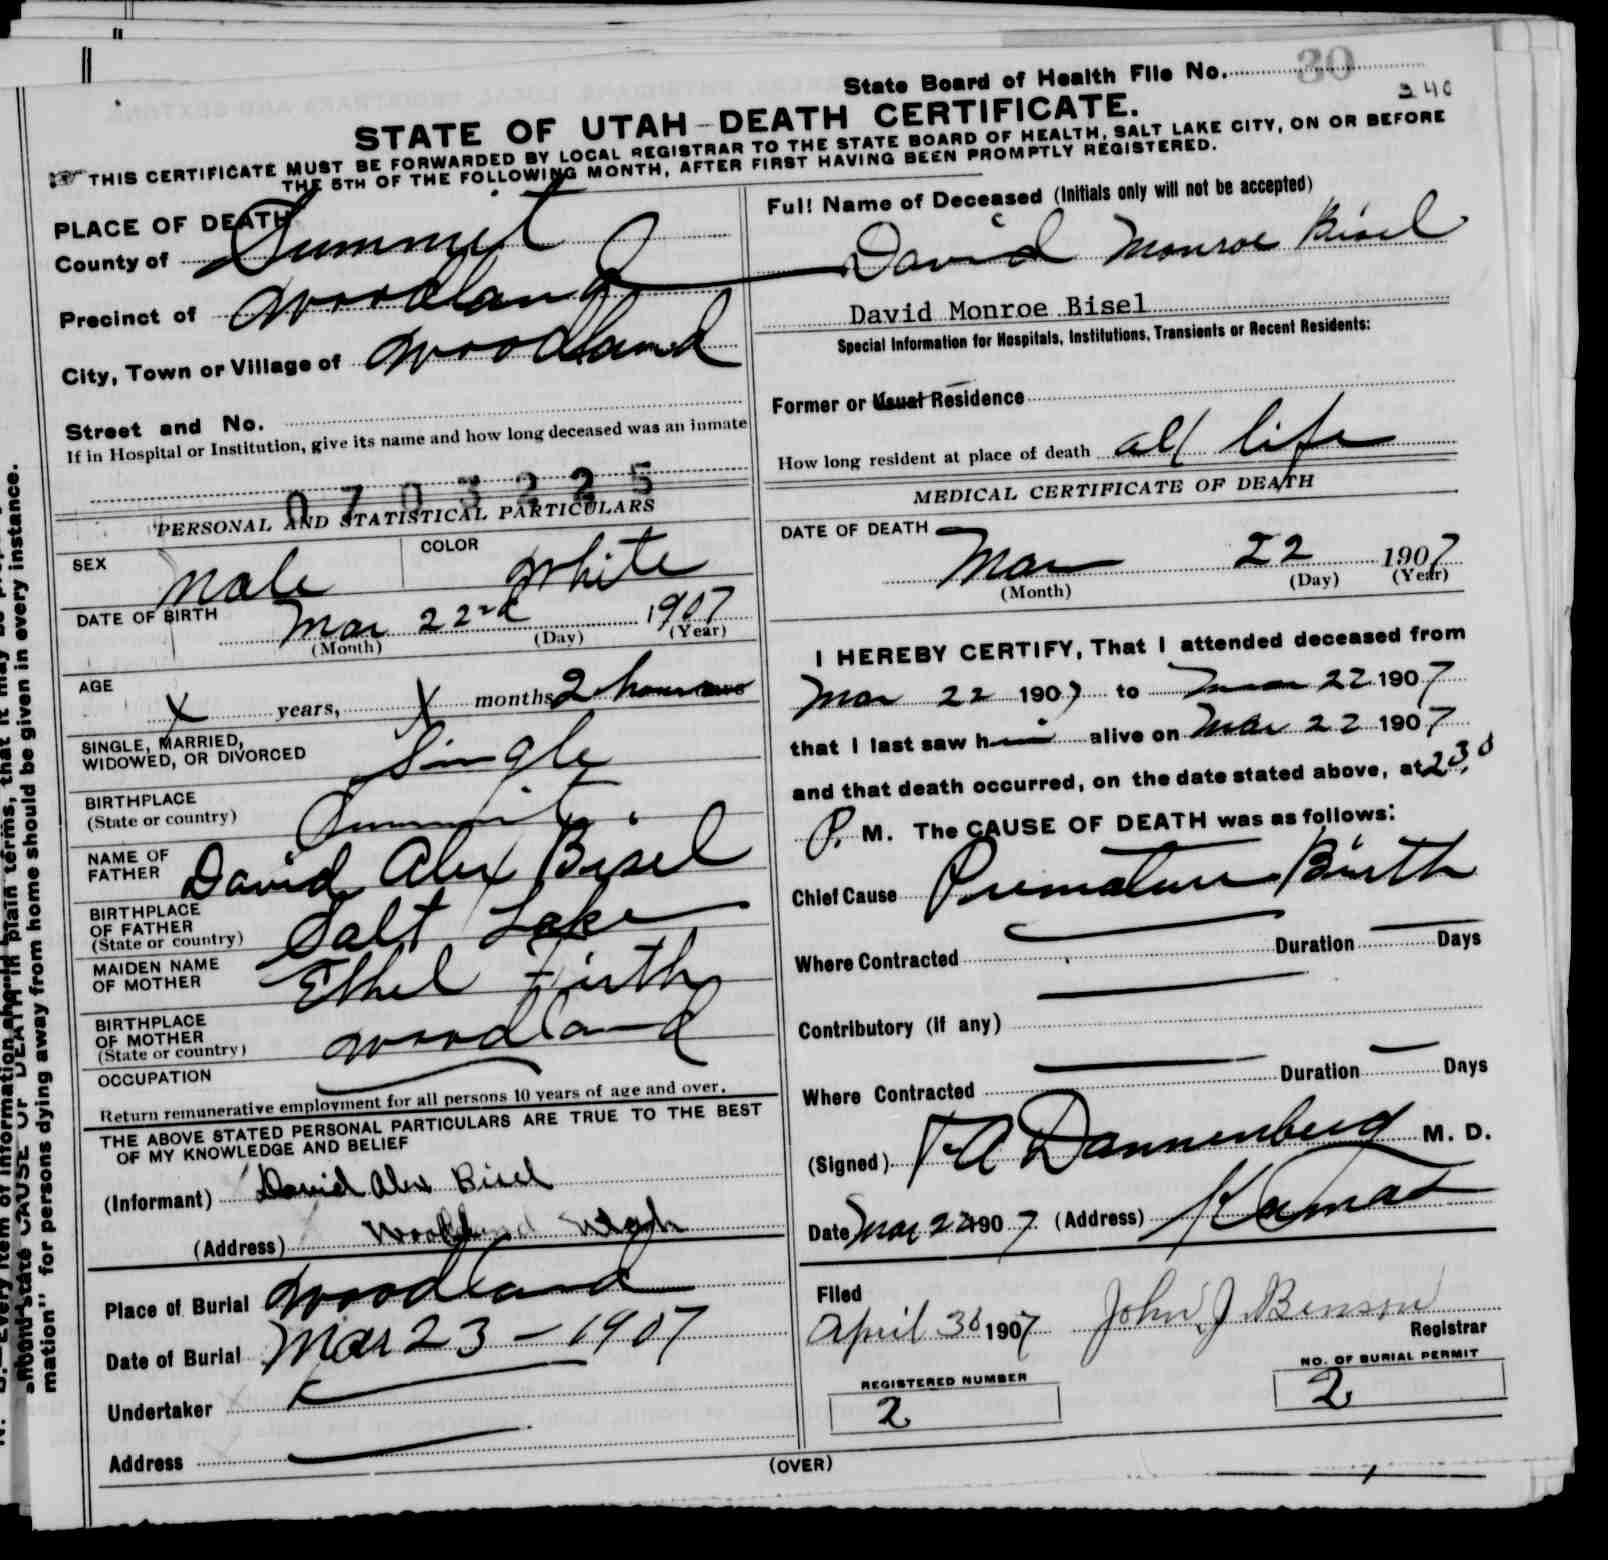 State Board of Health File No. 30
240
STATE OF UTAH-DEATH CERTIFICATE.
THIS CERTIFICATE MUST BE FORWARDED BY LOCAL REGISTRAR TO THE STATE BOARD OF HEALTH, SALT LAKE CITY, ON OR BEFORE
THE 5TH OF THE FOLLOWING MONTH, AFTER FIRST HAVING BEEN PROMPTLY REGISTERED.
PLACE OF DEATH
County of Summit
Precinct of Woodland
City, Town or Village of Woodland
Street and No.
If in Hospital or Institution, give its name and how long deceased was an inmate
0703225
PERSONAL AND STATISTICAL PARTICULARS
SEX Male COLOR White
DATE OF BIRTH Mar 22nd 1907
(Month) (Day) (Year)
AGE X years, X months 2 hours
SINGLE, MARRIED,
WIDOWED, OR DIVORCED Single
BIRTHPLACE
(State or country) Summit
NAME OF
FATHER David Alex Bisel
BIRTHPLACE
OF FATHER
(State or country) Salt Lake
MAIDEN NAME
OF MOTHER Ethel Firth
BIRTHPLACE
OF MOTHER
(State or country) Woodland
OCCUPATION
Return remunerative employment for all persons 10 years of age and over.
THE ABOVE STATED PERSONAL PARTICULARS ARE TRUE TO THE BEST
OF MY KNOWLEDGE AND BELIEF
(Informant) David Alex Bisel
(Address) Woodland Utah
Place of Burial Woodland
Date of Burial Mar 23 - 1907
Undertaker
Address
Full Name of Deceased (Initials only will not be accepted)
David Monroe Bisel
David Monroe Bisel
Special Information for Hospitals, Institutions, Transients or Recent Residents:
Former or Usual Residence
How long resident at place of death all life
MEDICAL CERTIFICATE OF DEATH
DATE OF DEATH
Mar 22 1907
(Month) (Day) (Year)
I HEREBY CERTIFY, That I attended deceased from
Mar 22 1907 to Mar 22 1907
that I last saw him alive on Mar 22 1907
and that death occurred, on the date stated above, at 230
P. M. The CAUSE OF DEATH was as follows:
Chief Cause Premature Birth
Where Contracted Duration Days
Contributory (if any)
Where Contracted Duration Days
(Signed) Dannenberg M. D.
Date Mar 22 1907 (Address) Kamas
Filed
April 30 1907 John J. Benson
Registrar
REGISTERED NUMBER
2
NO. OF BURIAL PERMIT
2
(OVER)
mation" for persons dying away from home should be given in every instance.